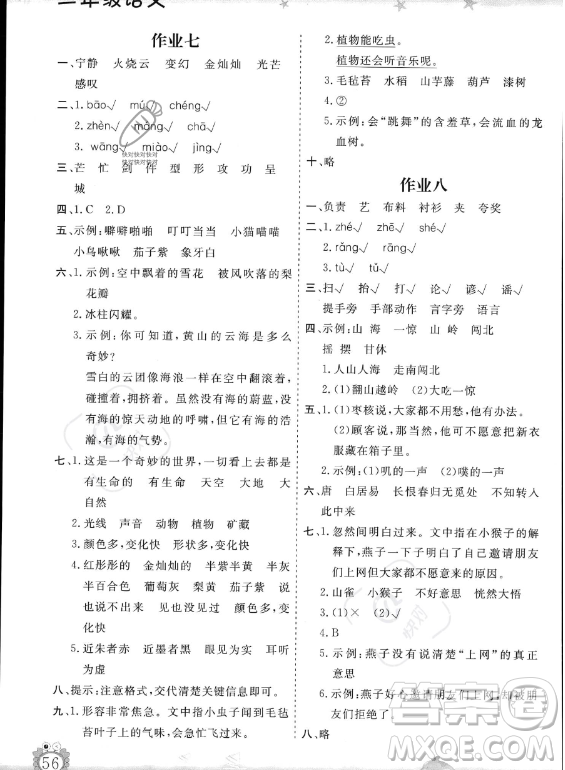 二年级语文
作业七
一、宁静 火烧云 变幻 金灿灿 光芒
感叹
二、1.bāo√ mú√ chéng√
2.zhèn√ màng√ chā√
3.wāng√ miào√ níng√
三、芒 忙 剑 件 型 形 攻 功 呈
城
四、1.C 2.D
五、示例：噼噼啪啪 叮叮当当 小猫喵喵
小鸟啾啾 茄子紫 象牙白
六、1.示例：空中飘着的雪花 被风吹落的梨
花瓣
2.冰柱闪耀。
3.示例：你可知道，黄山的云海是多么
奇妙？
雪白的云团像海浪一样在空中翻滚着，
碰撞着，拥挤着。虽然没有海的蔚蓝，没
有海的惊天动地的呼啸，但它有海的浩
瀚，有海的气势。
七、1.这是一个奇妙的世界，一切看上去都是
有生命的 有生命的 天空 大地 大
自然
2.光线 声音 动物 植物 矿藏
3.颜色多，变化快 形状多，变化快
4.红彤彤的 金灿灿的 半紫半黄 半
灰半百合色 葡萄灰 梨黄 茄子紫
示例：颜色很多，变化很快。
5.近朱者赤 近墨者黑 眼见为实 耳听
为虚
八、提示：注意格式，交代清楚关键信息即可。
九、1.形容非常焦急。文中指小虫子闻到毛毡
苔叶子上的气味，会急忙飞过来。
56
2.植物能吃虫。
植物还会听音乐呢。
3.毛毡苔 水稻 山芋藤 葫芦 漆树
4.②
5.示例：会“跳舞”的含羞草，会流血的龙
血树。
十、略
作业八
一、负责 艺 布料 衬衫 夹 夸奖
二、1.zhé√ zhē√ shé√
2.rǎng√ rāng√
3.tù√ tǔ√
三、扫√ 抬√ 论√ 谚√ 谣√
提手旁 手部动作 言字旁 语言
四、示例：山海 一惊 山岭 闯北
摇摆 甘休
1.人山人海 走南闯北
2.(1)翻山越岭 (2)大吃一惊
五、1.(1)枣核说，大家都不用愁，他有办法。
(2)顾客说，那就请您把我买的新衣
服藏在箱子里。
2.示例：(1)叽的一声 (2)嘎的一声
六、唐 白居易 长恨春归无觅处 不知转入
此中来
七、1.忽然间明白过来。文中指在小猴子的解
释下，燕子一下子明白了自己邀请朋友
们上网但大家都不愿意来的原因。
2.山雀 小猴子 恍然大悟
3.(1)× (2)√
4.B
5.示例：燕子没有说清楚“上网”的真正
意思
6.示例：燕子好心邀请朋友们上网，却被朋
友们拒绝了
八、略